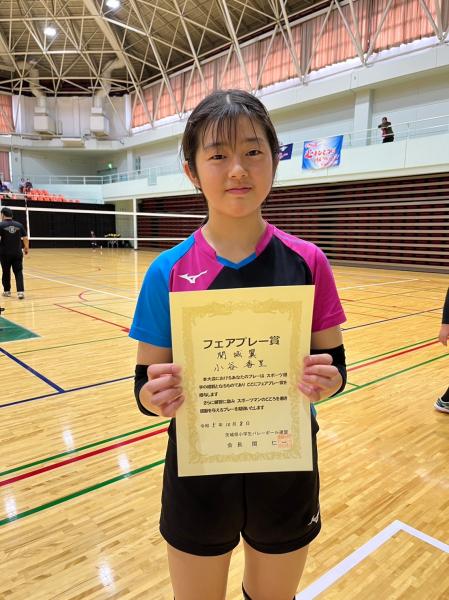 フェアプレー賞
関城翼
小谷 香里
本大会におけるあなたのプレーは スポーツ選
手の模範となるものであり ここにフェアプレー賞を
贈ります
さらに練習に励み スポーツマンのこころを磨き
感動を与えるプレーを期待いたします
令和 5年 10月 8日
茨城県小学生バレーボール連盟
会長 関 仁